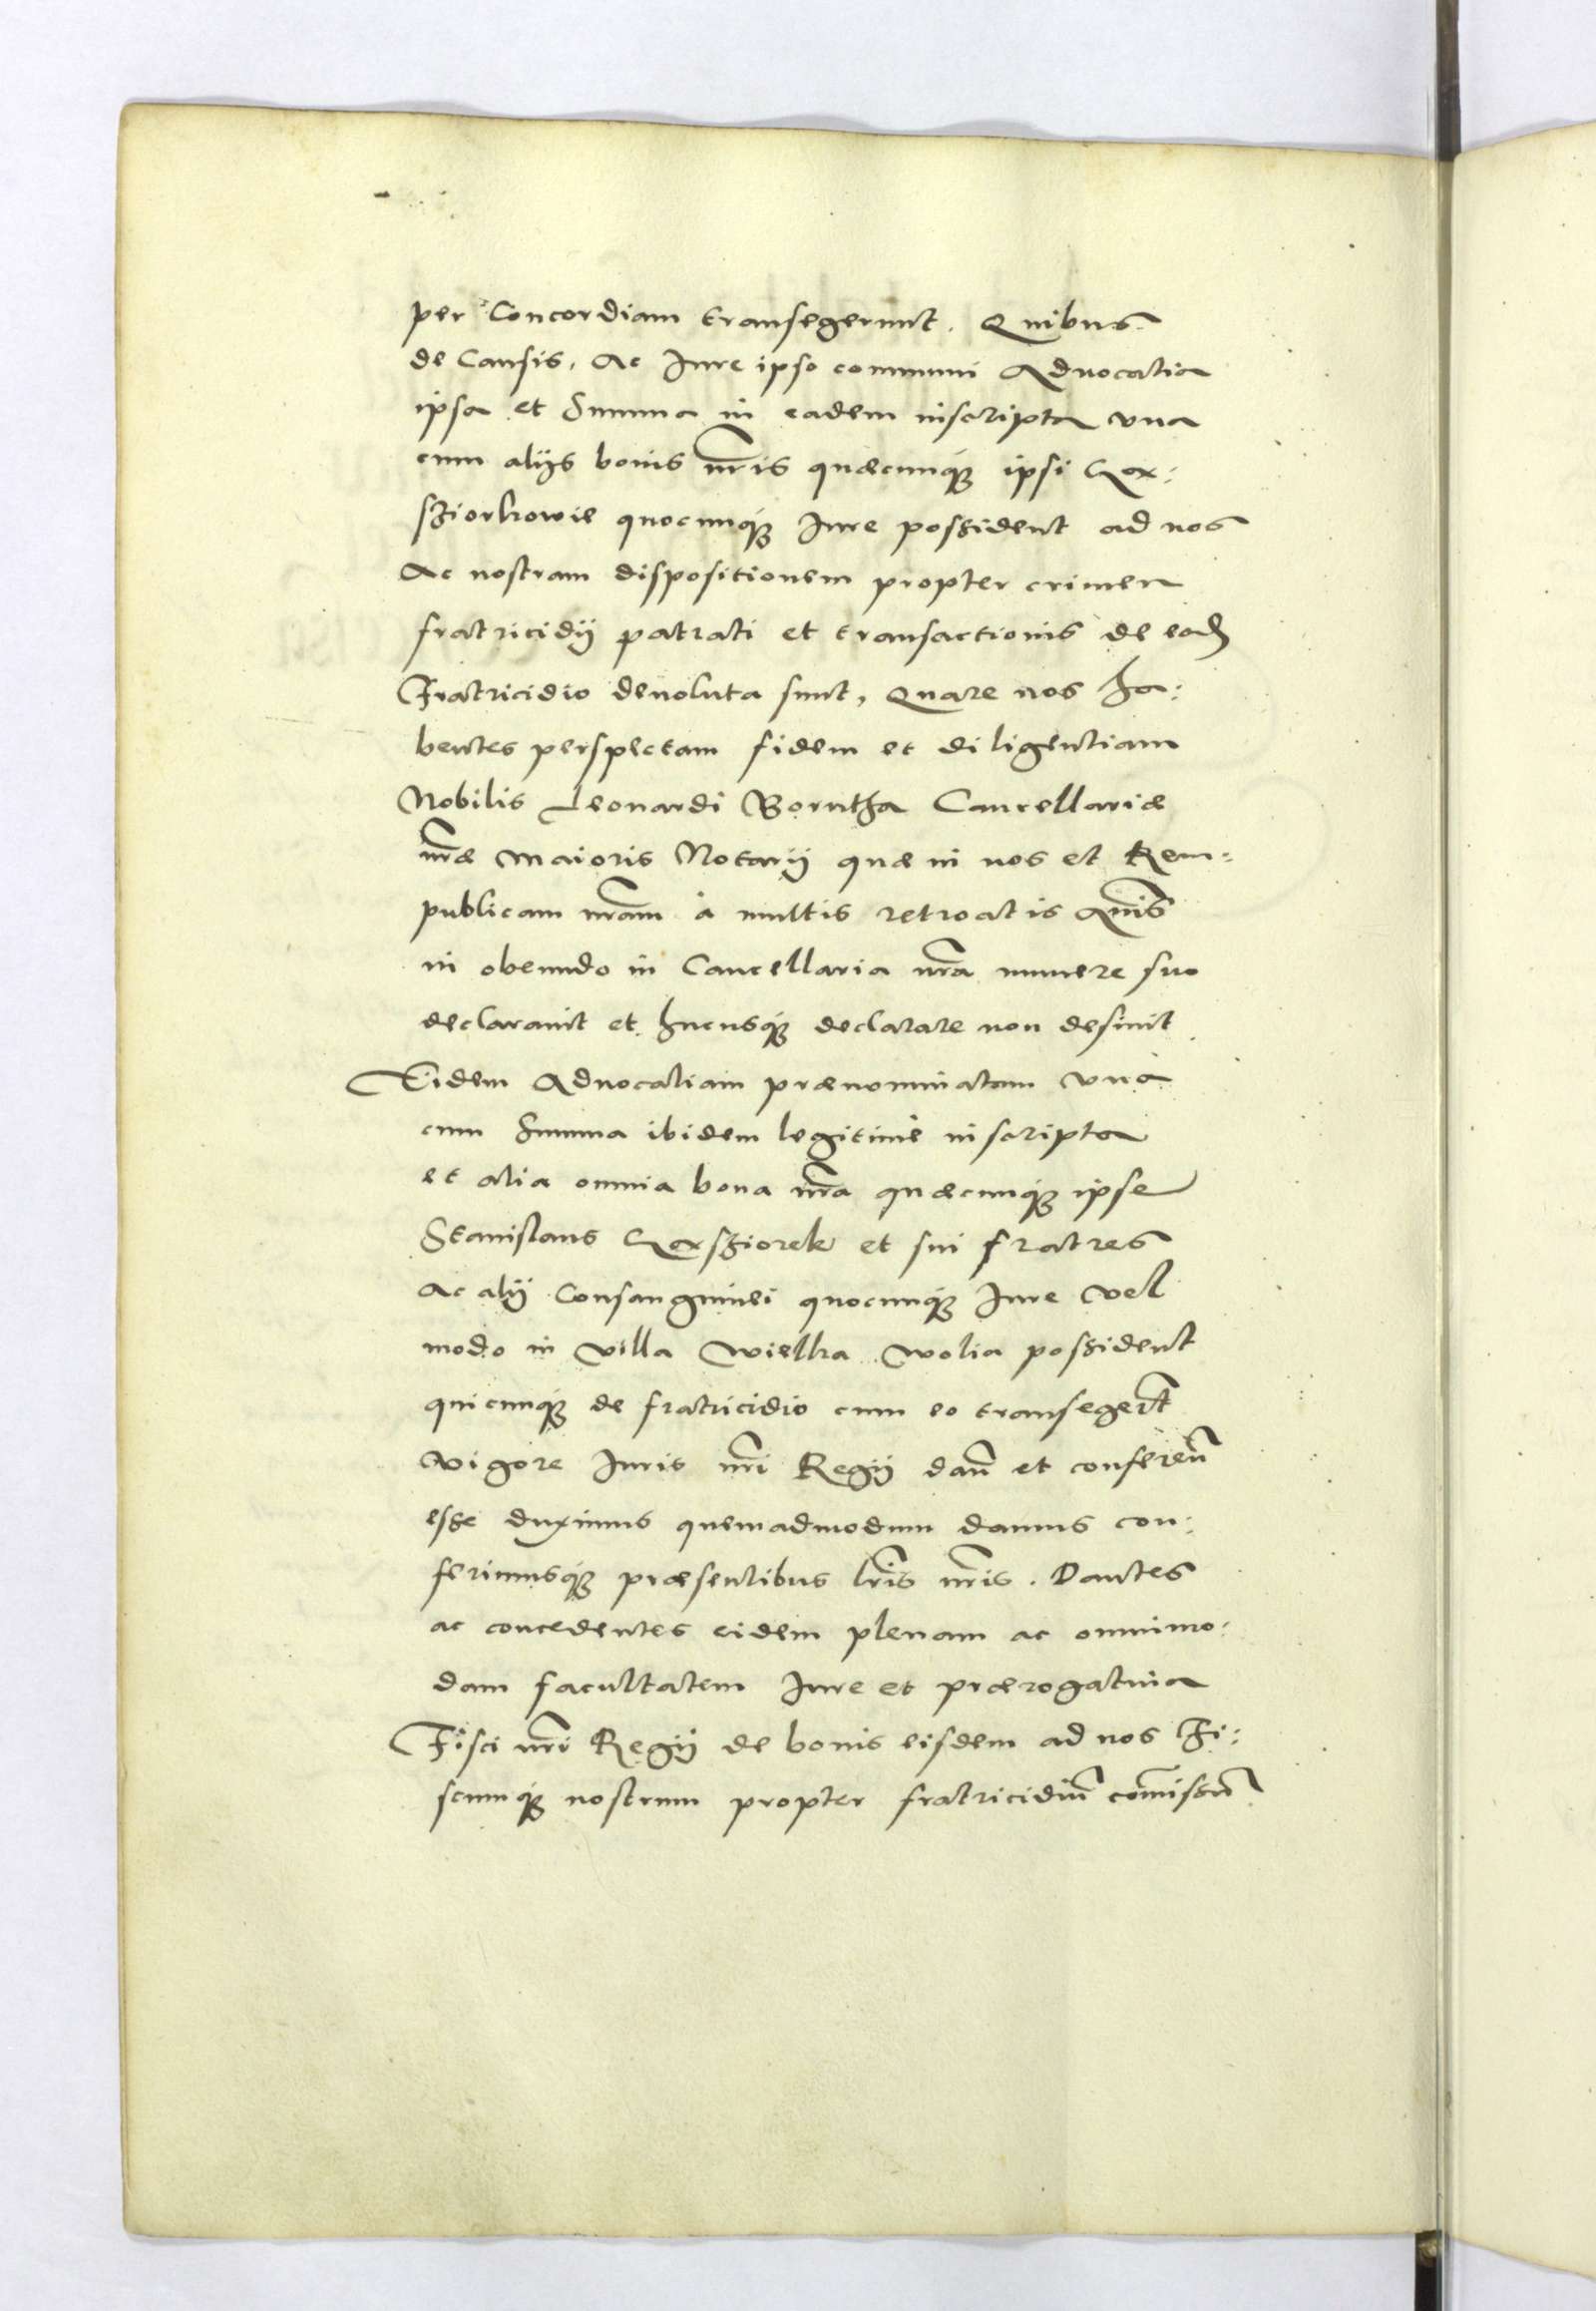 per Concordiam transegerunt. Quibus
de Causis, Ac Iure ipso communi Aduocatia
ipsa et Summa in eadem inscripta vna
cum alijs bonis nr̃is quæcunq̃ ipsi Gox:
sziorkowie quocunq̃ Iure possident ad nos
Ac nostram dispositionem propter crimen
fratricidij patrati et transactionis de eod̃
Fratricidio deuoluta sunt, Quare nos ha:
bentes perspectam fidem et diligentiam
Nobilis Leonardi Borutha Cancellariæ
nr̃æ Maioris Notarij quæ in nos et Rem:
publicam nr̃am à multis retroactis Annis
in obeundo in Cancellaria nr̃a munere suo
declarauit et hucusq̃ declarare non desinit
Eidem Aduocatiam prænominatam vna
cum Summa ibidem legitimè inscripta
et alia omnia bona nr̃a quæcunq̃ ipse
Stanislaus Goxsziorek et sui fratres
Ac alij Consanguinei quocunq̃ Iure vel
modo in Villa Wielka Wolia possident
quicunq̃ de fratricidio cum eo transeger̃t
vigore Iuris nr̃i Regij dañ et conferen̄
esse duximus quemadmodum damus con:
ferimusq̃ præsentibus lr̃is nr̃is. Dantes
ac concedentes eidem plenam ac omnimo:
dam facultatem Iure et prærogatiuia
Fisci nr̃i Regij de bonis eisdem ad nos Fi:
scumq̃ nostrum propter fratricidiũ com̃issũ